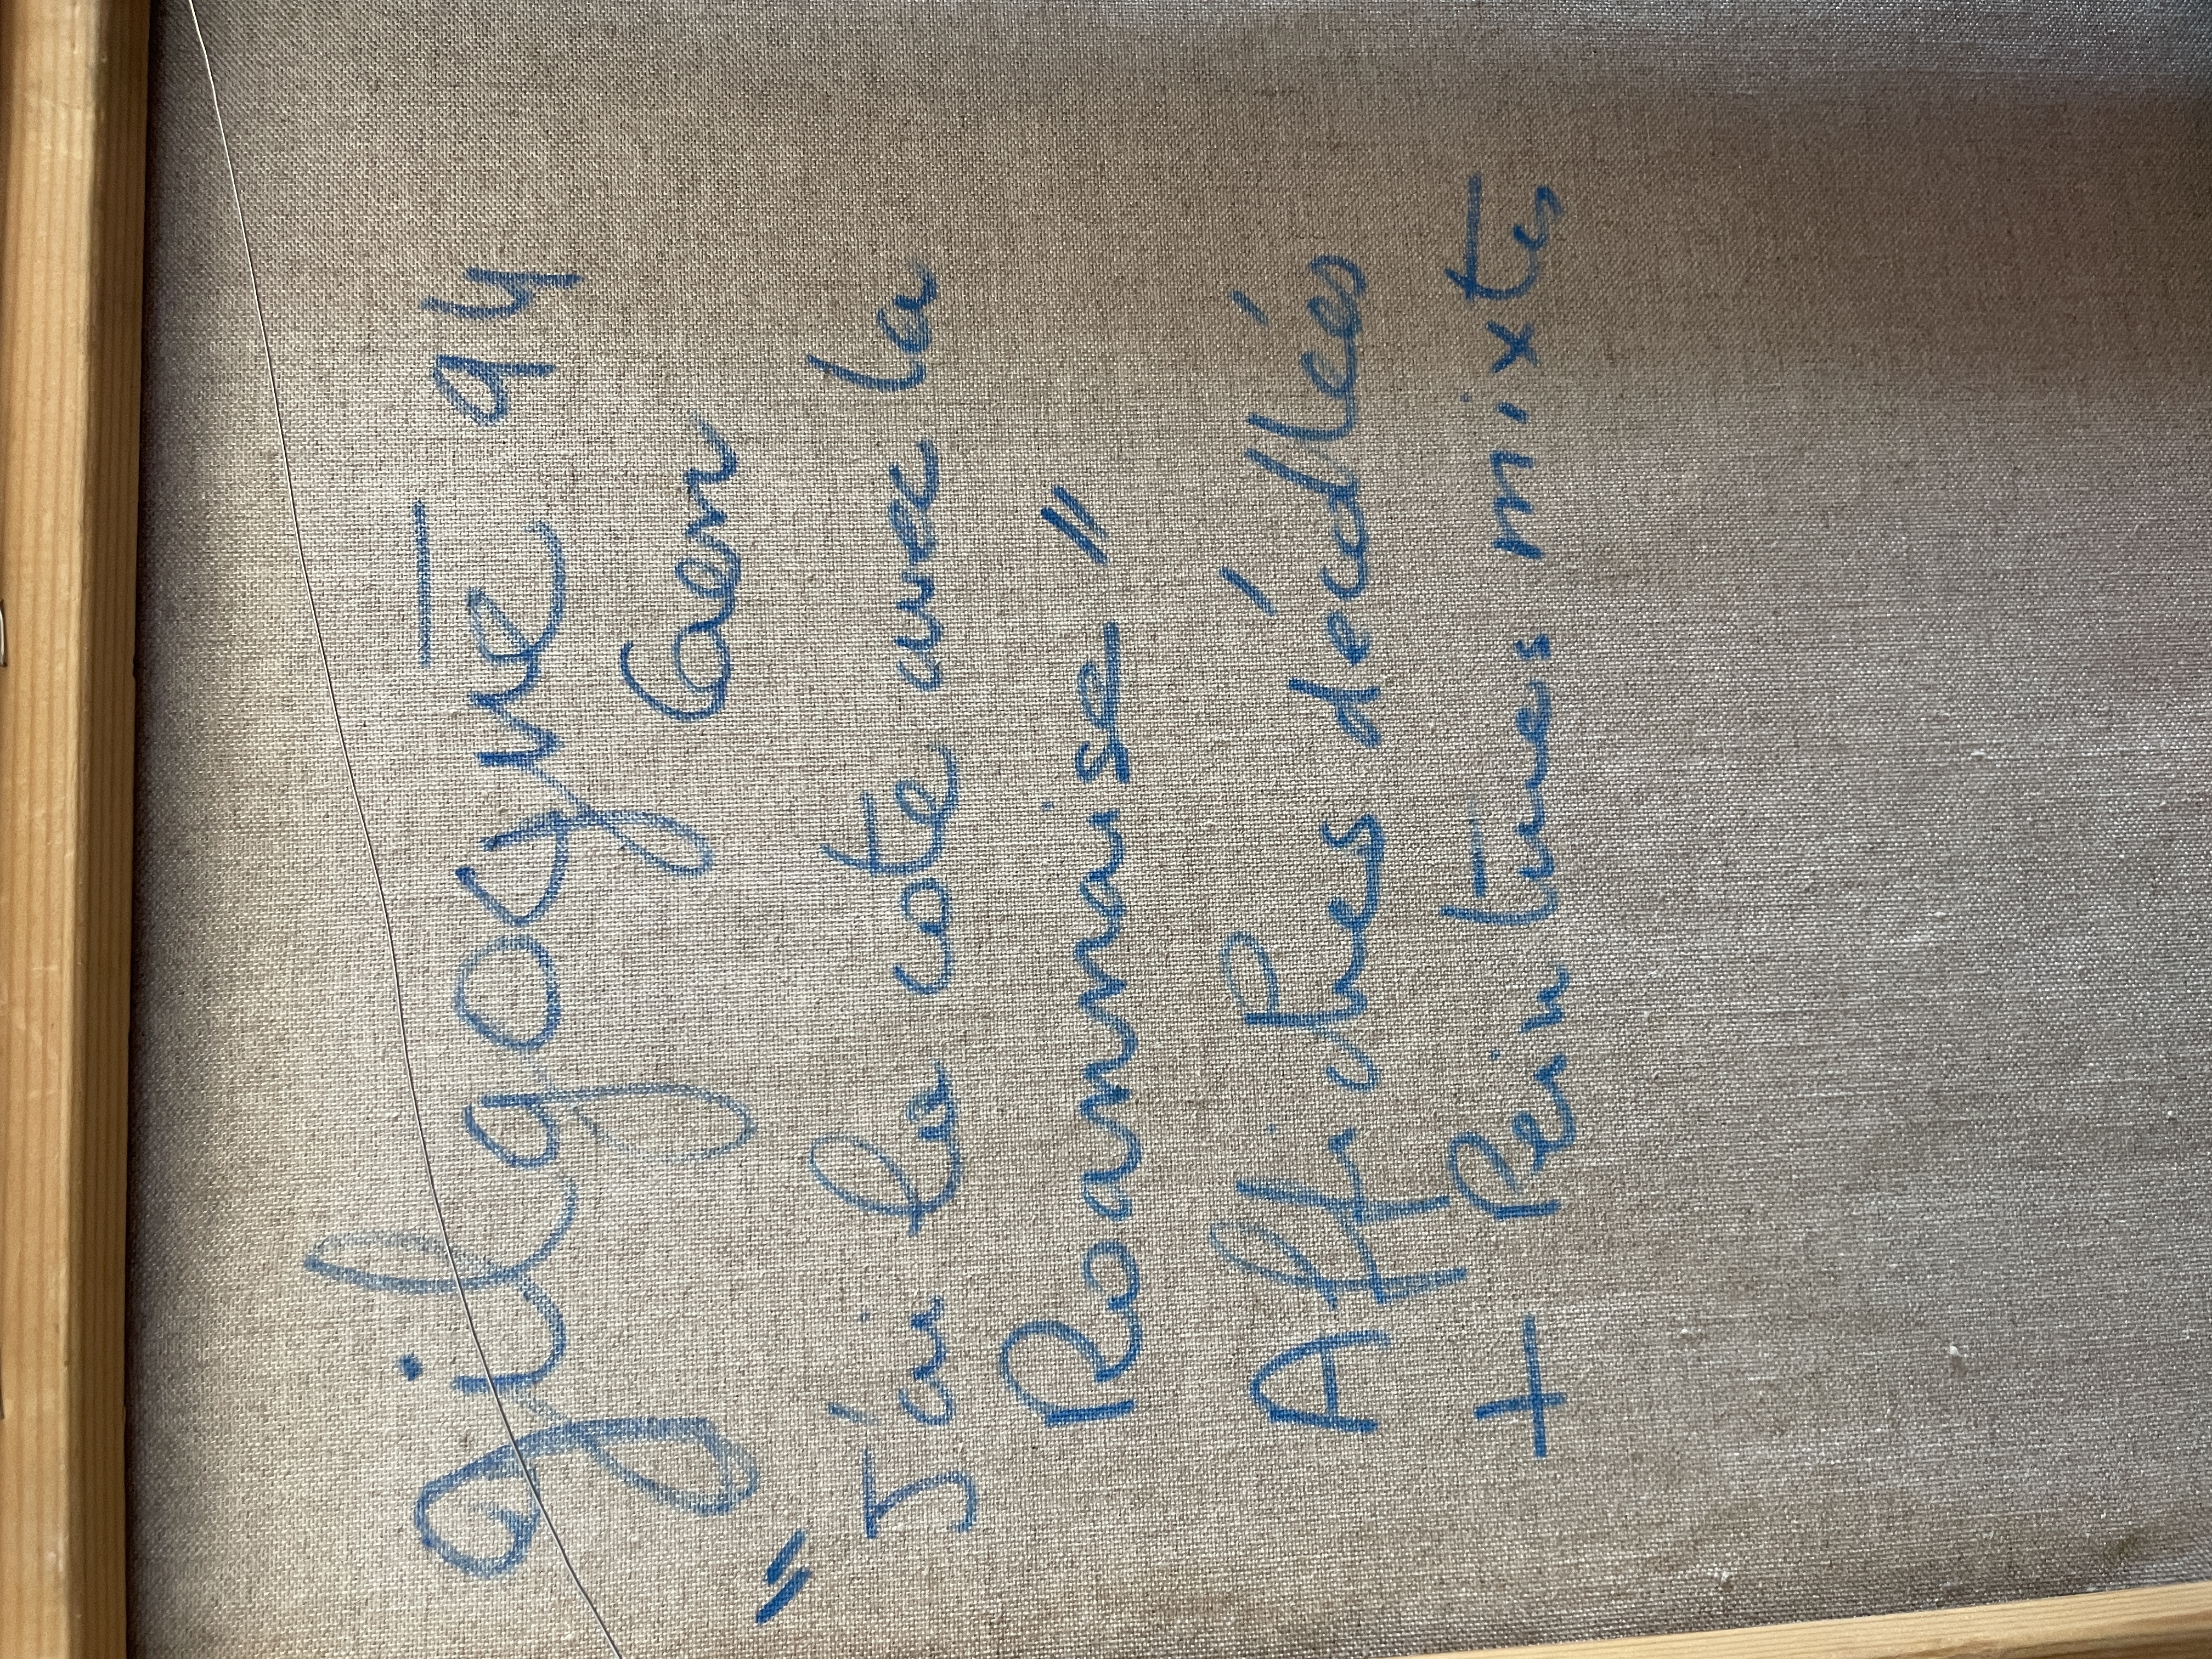 94
Caen
"J'ai la cote avec la
Roannaise"
Affiches décollées
+ Peintures mixtes